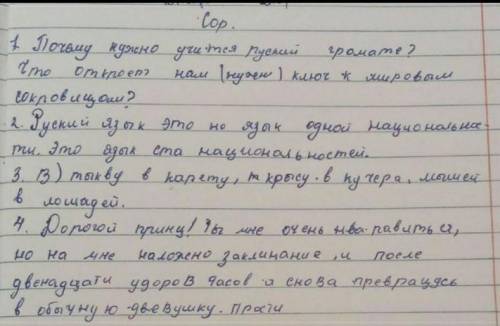 Сор.
1. Почему нужно учится руский громате?
Что откроет нам (нужен) ключ к мировым
сокровищам?
2. Руский язык это не язык одной национальнос-
ти. Это язык ста национальностей.
3. В) тыкву в карету, крысу в кучера, мышей
в лошадей.
4. Дорогой принц! Ты мне очень нравиться,
но на мне наложено заклинание, и после
двенадцати ударов часов я снова превращусь
в обычную девушку. Прости